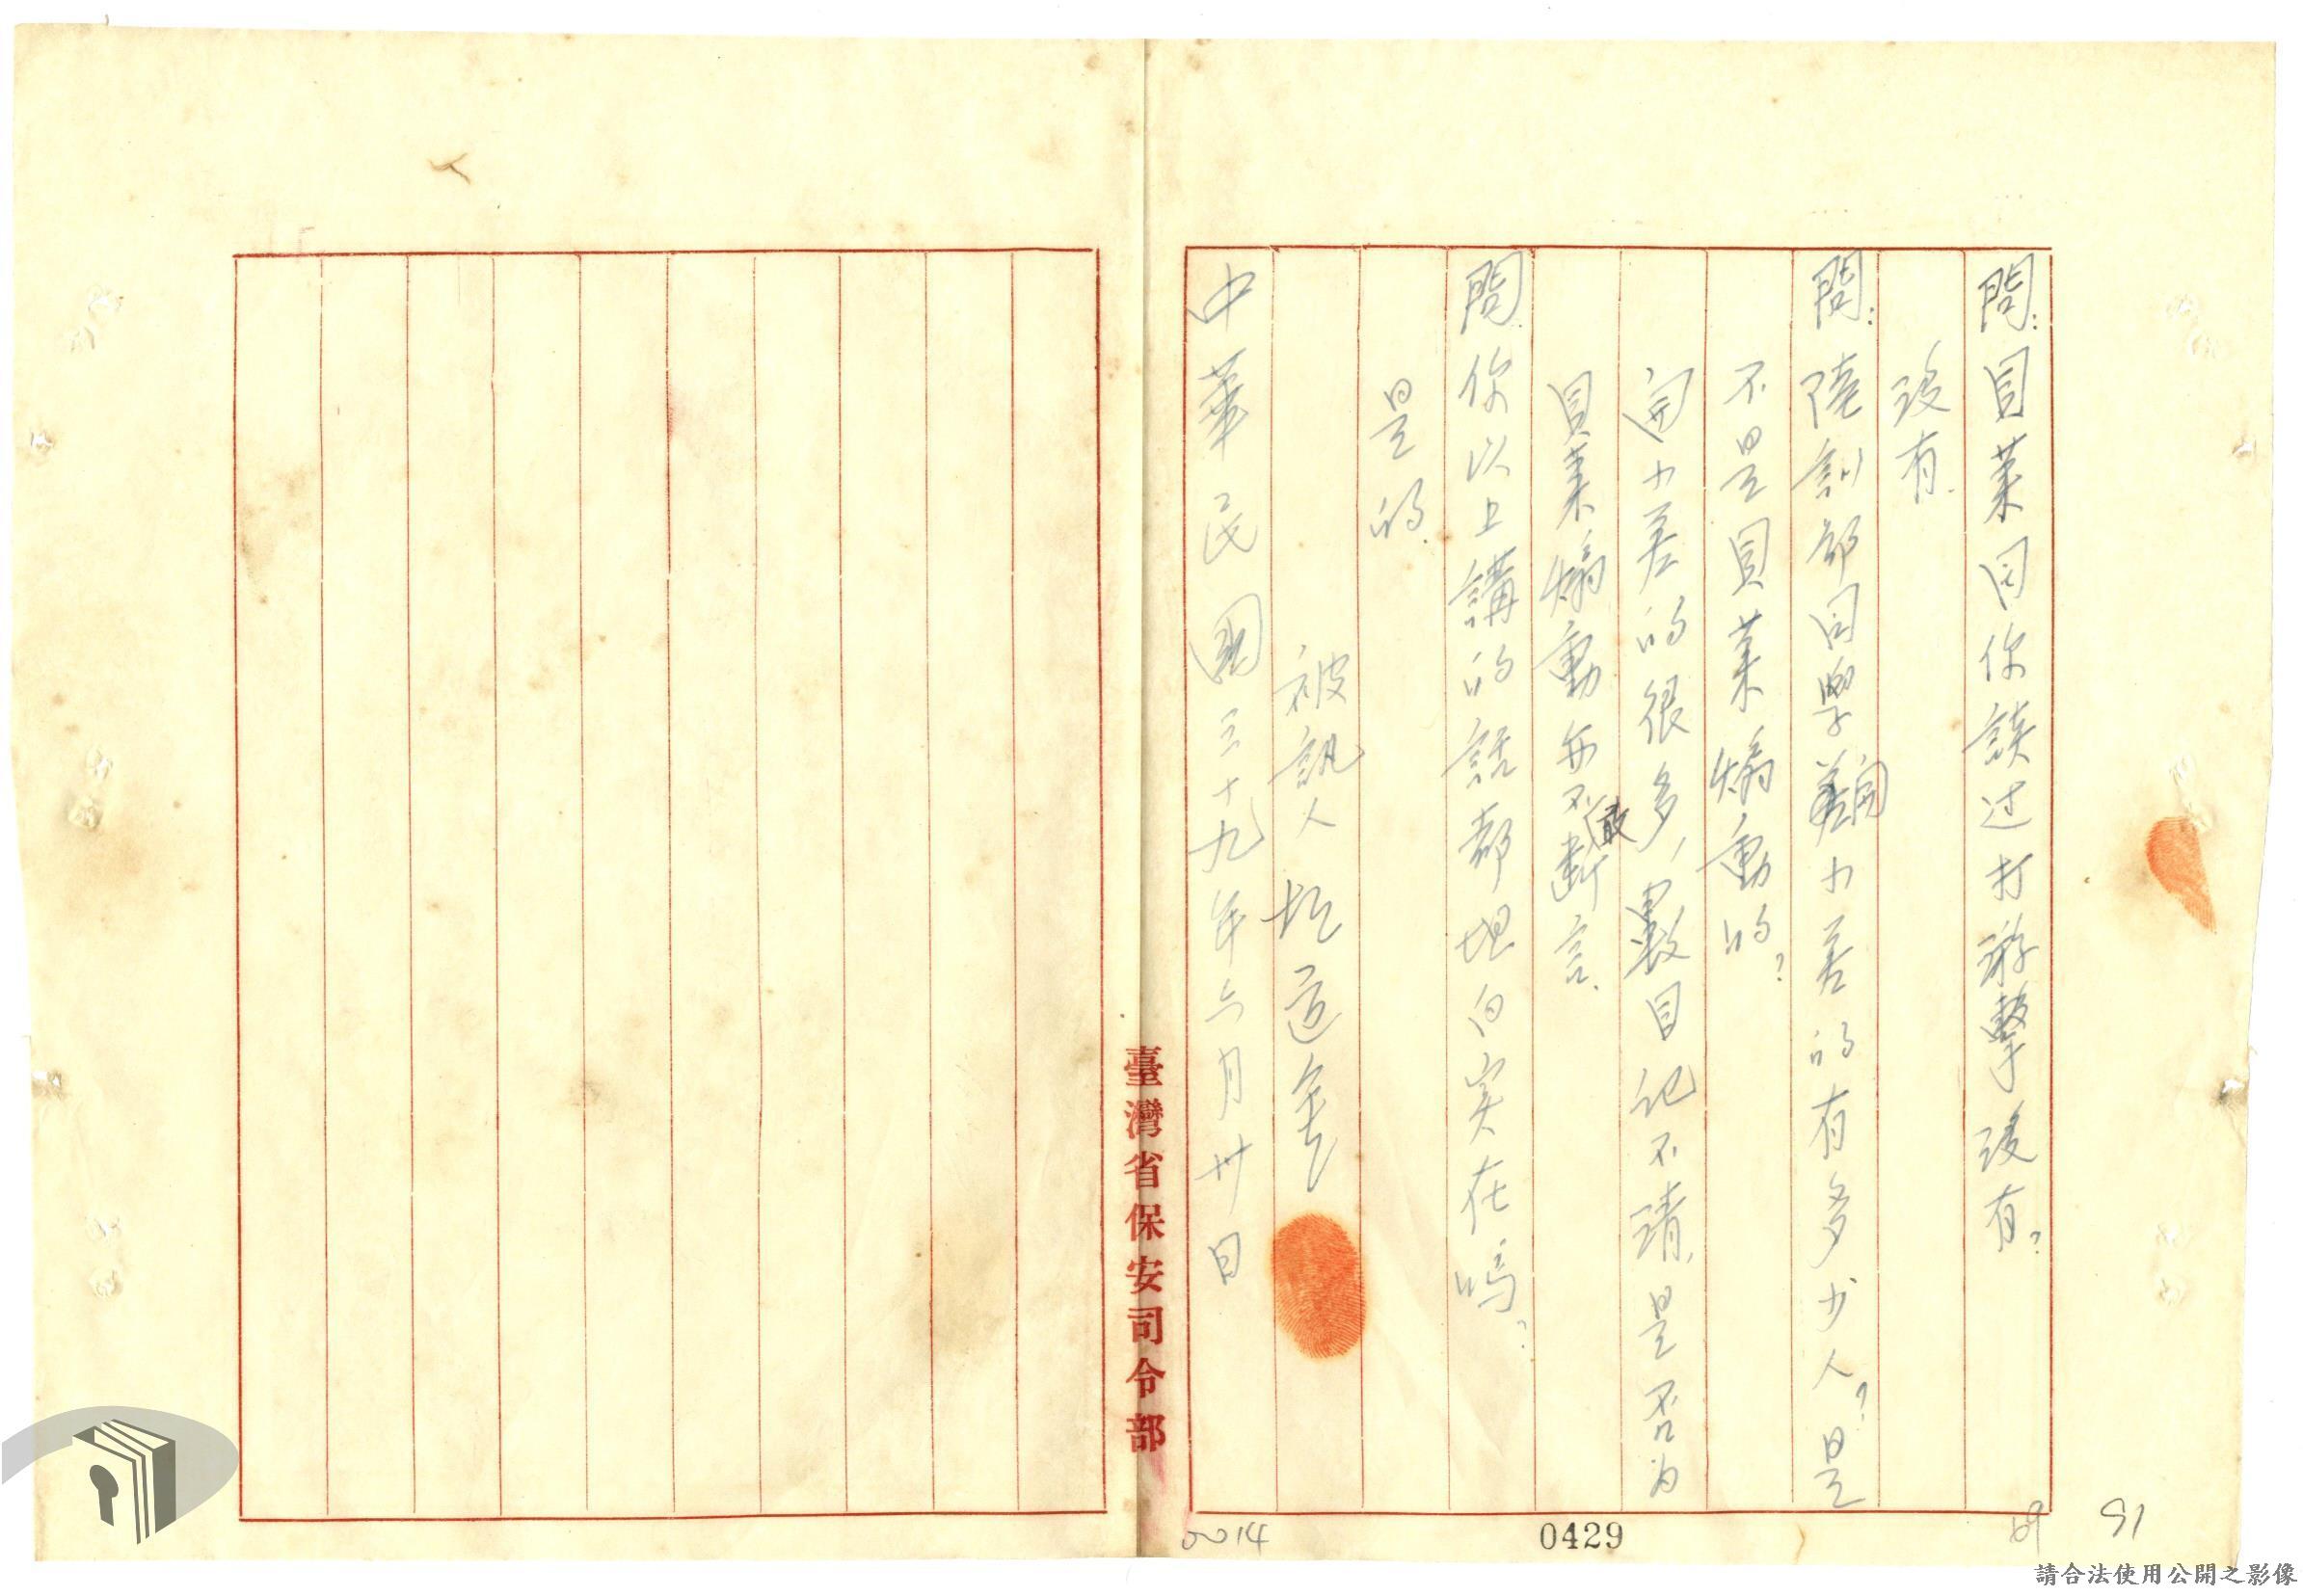 問：貝萊同你談过打游擊沒有？
沒有.
問：陸訓部同學開小差的有多少人？是
不是貝萊煽動的？
開小差的很多，數目記不清，是否为
貝萊煽動亦不敢斷言.
問.你以上講的話都坦白实在嗎？
是的.
被訊人 道
中華民國三十九年六月廿日
臺灣省保安司令部
0014
0429
69
91
請合法使用公開之影像